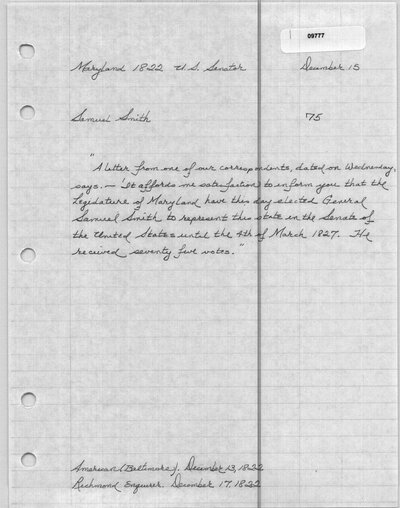 09777
Maryland 1822 U.S. Senator December 15
Samuel Smith 75
"A letter from one of our correspondents, dated on Wednesday,
says. — 'It affords me satisfaction to inform you that the
Legislature of Maryland have this day elected General
Samuel Smith to represent this state in the Senate of
the United States until the 4th of March 1827. He
received seventy five votes."
American (Baltimore). December 13, 1822
Richmond Enquirer. December 17, 1822